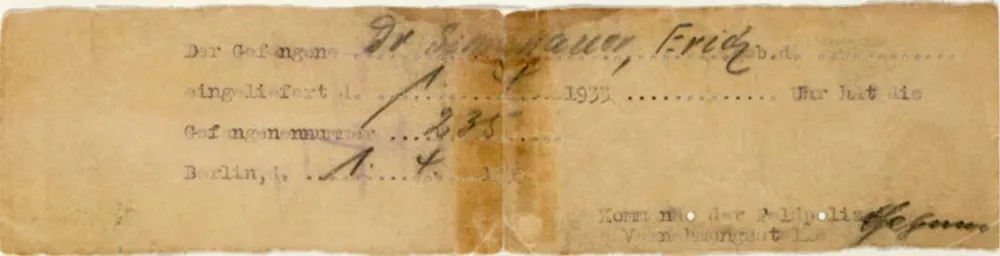 Der Gefangene Dr Simenauer, Erich geb.d. ................
eingeliefert d. 1. 4. 1933 .............. Uhr hat die
Gefangenennummer .... 235 ........
Berlin,d. ... 1. 4. ....193
Kommando der Feldpolizei
Vernehmungsstelle